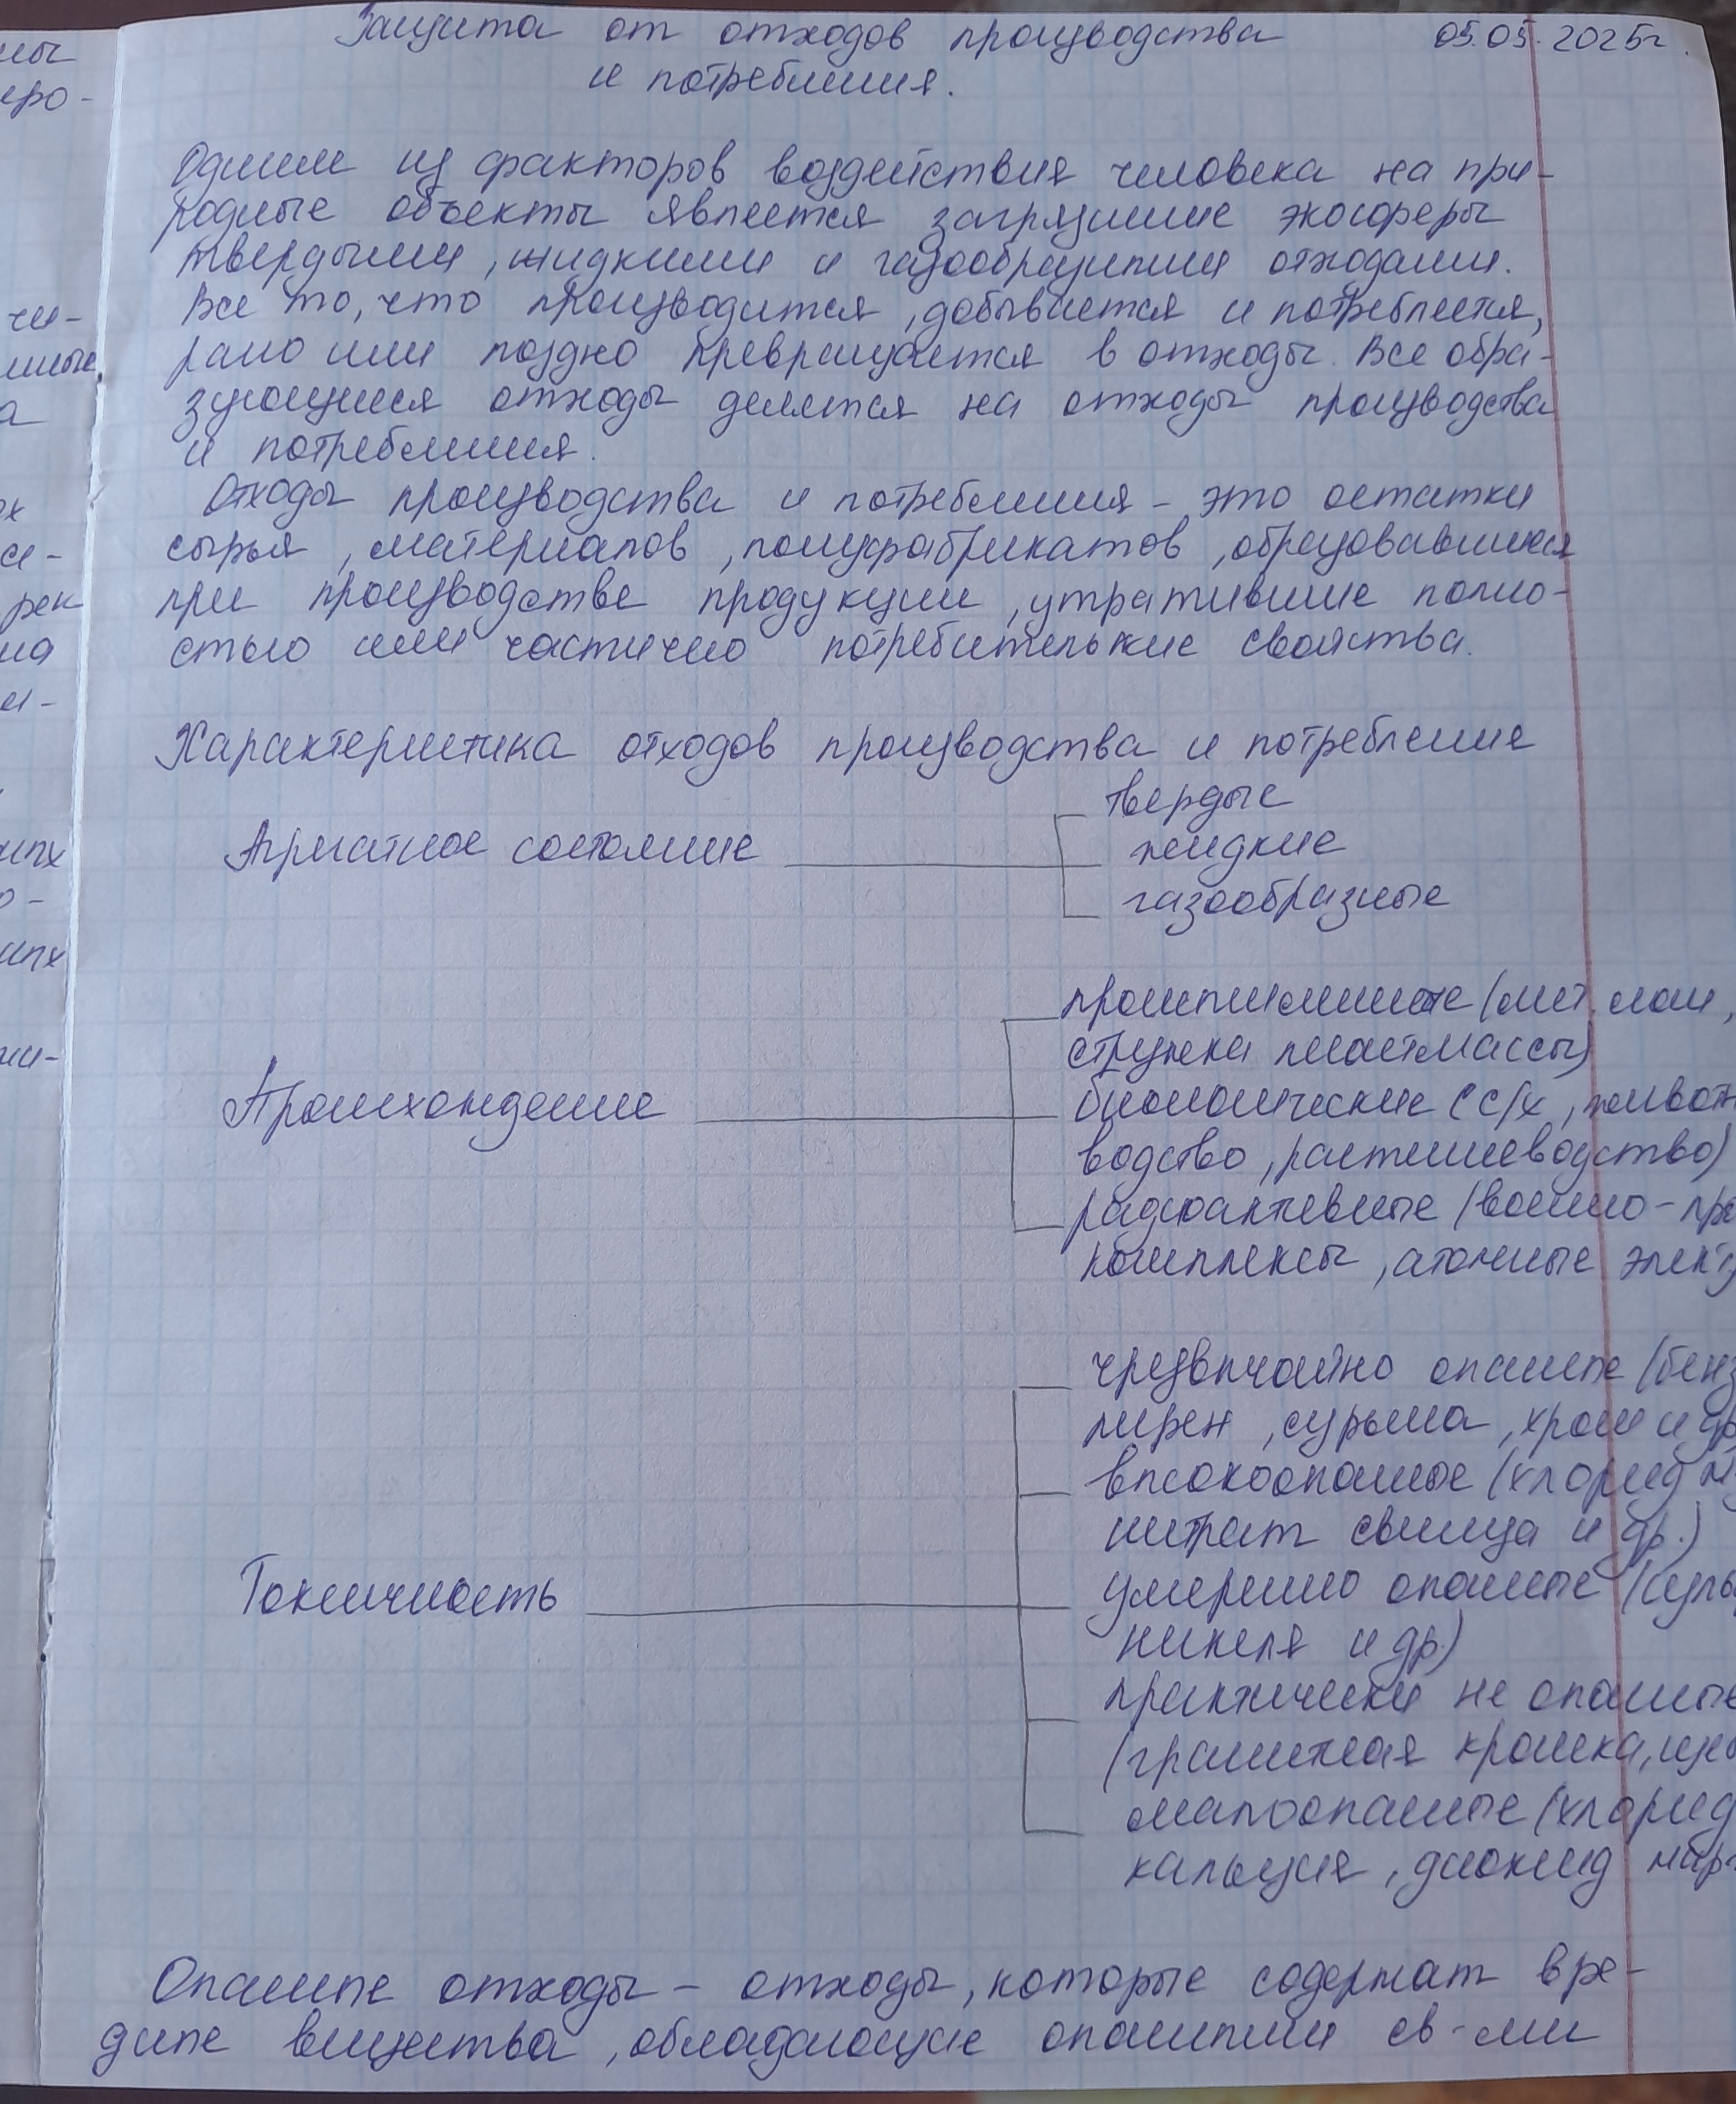 Защита от отходов производства 05.05.2025г.
и потребления.
Одним из факторов воздействия человека на при-
родные объекты является загрязнение экосферы
твердыми, жидкими и газообразными отходами.
Все то, что производится, добывается и потребляется,
рано или поздно превращается в отходы. Все обра-
зующиеся отходы делятся на отходы производства
и потребления.
Отходы производства и потребления - это остатки
сырья, материалов, полуфабрикатов, образовавшихся
при производстве продукции, утратившие полно-
стью или частично потребительские свойства.
Характеристика отходов производства и потребление
твердые
Агрегатное состояние
жидкие
газообразные
промышленные (мет. лом,
стружка пластмассы)
Происхождение
биологические (с/х, живот
водство, растениеводство)
радиоактивные (военно-пр
комплексы, атомные элект
чрезвычайно опасные (бенз
пирен, сурьма, хром и др
высокоопасные (хлорид
нитрат свинца и др.)
Токсичность
умеренно опасные (суль
никеля и др.)
практически не опасные
(гранитная крошка,
малоопасные (хлорид
кальция, диоксид мар
Опасные отходы - отходы, которые содержат вре-
дные вещества, обладающие опасными св-ми